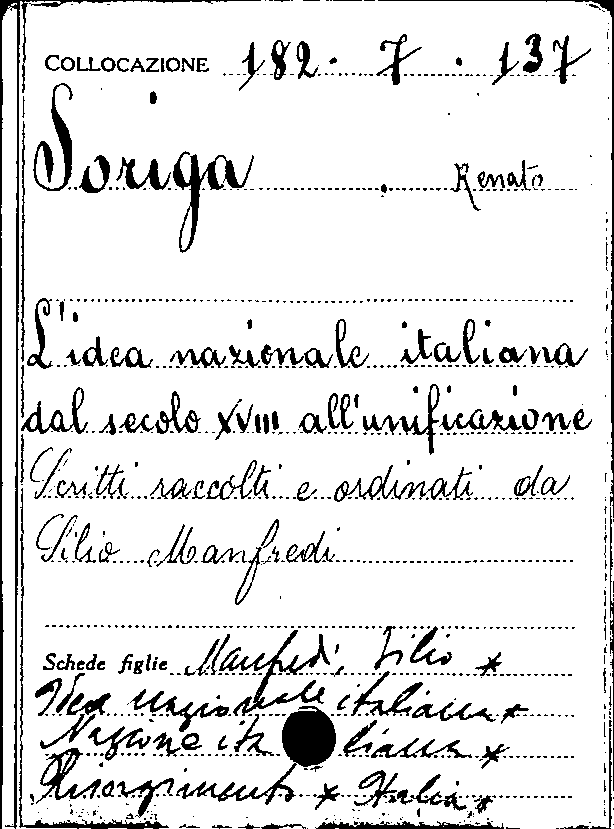 COLLOCAZIONE 182 . 7 . 137
Soriga . Renato
L'idea nazionale italiana
dal secolo XVIII all'unificazione
Scritti raccolti e ordinati da
Silio Manfredi
Schede figlie Manfredi, Silio *
Idea nazionale italiana *
Nazione italiana *
Risorgimento * Italia *